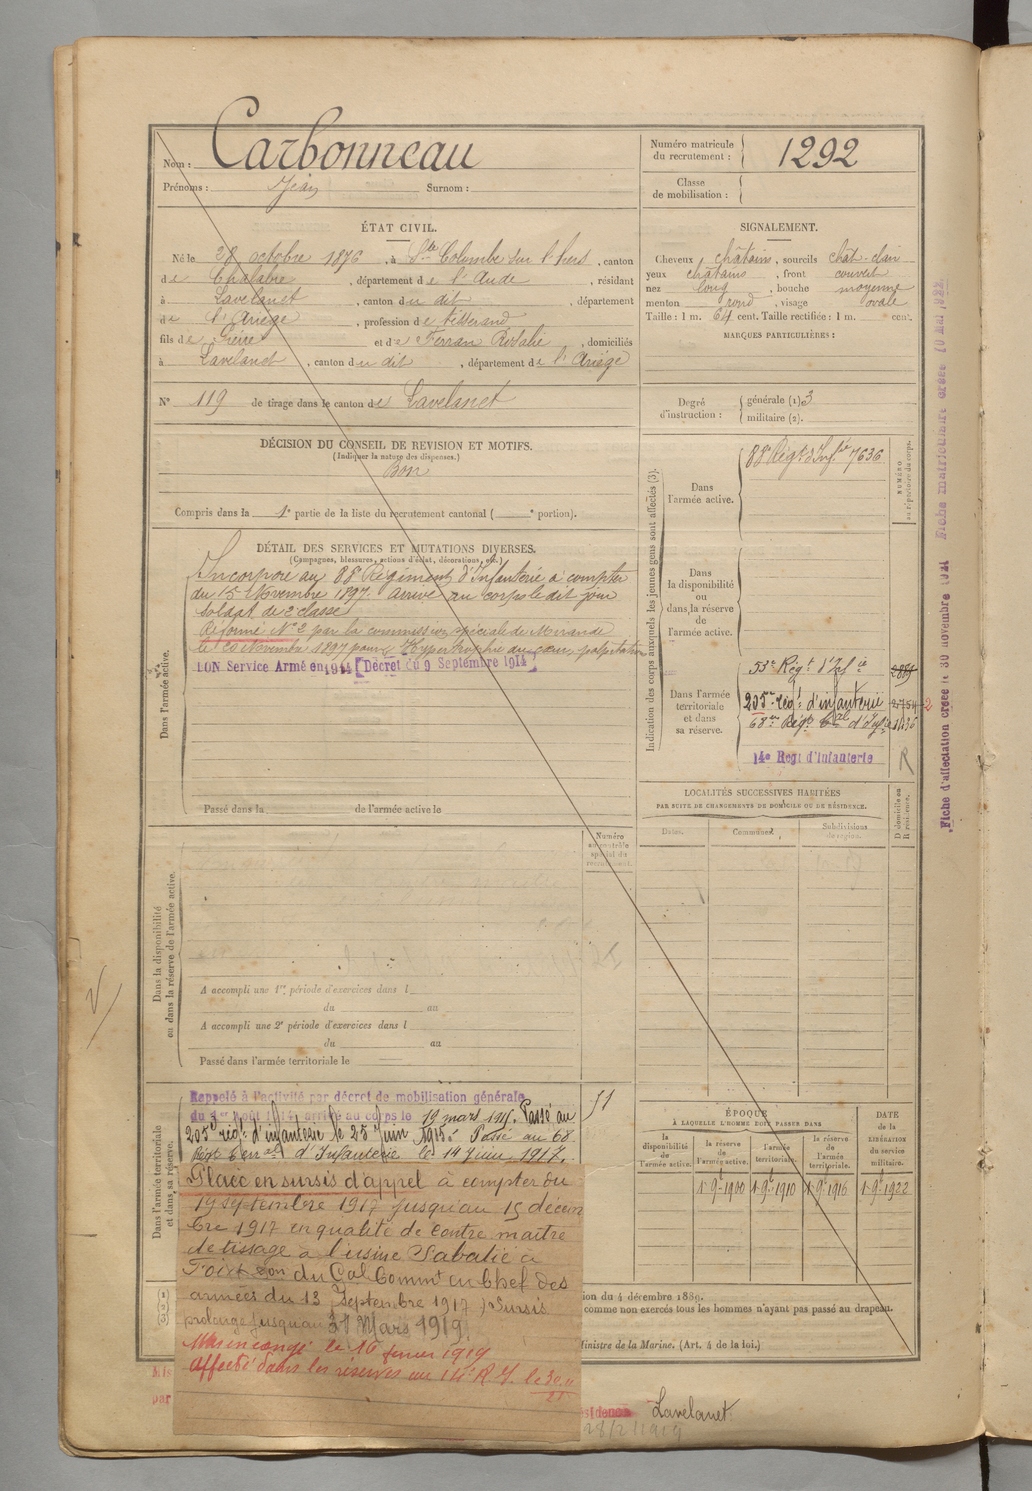 Nom : Carbonneau
Prénoms : Jean Surnom :
Numéro matricule du recrutement : 1292
Classe de mobilisation :
ÉTAT CIVIL.
Né le 28 octobre 1876, à Ste Colombe sur l'hers, canton
de Chalabre, département de l'Aude, résidant
à Lavelanet, canton du dit, département
de l'Ariège, profession de tisserand
fils de et de Ferran Rosalie, domiciliés
à Lavelanet, canton du dit, département de l'Ariège
N° 119 de tirage dans le canton de Lavelanet
SIGNALEMENT.
Cheveux châtains, sourcils chât. clair
yeux châtains, front couvert
nez long, bouche moyenne
menton rond, visage ovale
Taille : 1 m. 64 cent. Taille rectifiée : 1 m. cent.
MARQUES PARTICULIÈRES :
Degré d'instruction : générale (1) 3
militaire (2).
DÉCISION DU CONSEIL DE REVISION ET MOTIFS.
(Indiquer la nature des dispenses.)
Bon
Compris dans la 1e partie de la liste du recrutement cantonal ( e portion).
DÉTAIL DES SERVICES ET MUTATIONS DIVERSES.
(Campagnes, blessures, actions d'éclat, décorations, etc.)
Dans l'armée active.
Incorporé au 88e Régiment d'Infanterie à compter
du 15 Novembre 1897. arrivé au corps le dit jour
soldat de 2e classe
Réformé N° 2 par la commission spéciale de Mirande
le Novembre 1897 pour Hypertrophie du cœur, palpitations
BON Service Armé en 1914 [Décret du 9 Septembre 1914]
Passé dans la de l'armée active le
Indication des corps auxquels les jeunes gens sont affectés (3).
NUMÉRO au répertoire du corps.
Dans l'armée active.
88e Régt d'Infie 7636
Dans la disponibilité ou dans la réserve de l'armée active.
Dans l'armée territoriale et dans sa réserve.
53e Régt d'Infie
205e régt d'infanterie
68me Régt Tal d'Infie
14e Regt d'Infanterie R
LOCALITÉS SUCCESSIVES HABITÉES
PAR SUITE DE CHANGEMENTS DE DOMICILE OU DE RÉSIDENCE.
Dates. Communes. Subdivisions de région. D domicile ou R résidence.
Fiche d'affectation créée le 30 novembre 1921 Fiche matriculaire créée
Numéro au contrôle spécial du recrutement.
Dans la disponibilité ou dans la réserve de l'armée active.
A accompli une 1re période d'exercices dans l
du au
A accompli une 2e période d'exercices dans l
du au
Passé dans l'armée territoriale le
Dans l'armée territoriale et dans sa réserve.
Rappelé à l'activité par décret de mobilisation générale
du 1er août 1914, arrivé au corps le 19 mars 1915. Passé au
205e régt d'infanterie le 23 Juin 1915. Passé au 68
Régt Terral d'Infanterie le 14 Juin 1917.
Placé en sursis d'appel à compter du
19 septembre 1917 jusqu'au 15 décem
bre 1917 en qualité de contre maitre
de tissage à l'usine Sabatié à
Foix don du Gal Commt en Chef des
armées du 13 Septembre 1917) Sursis
prolongé jusqu'au 31 Mars 1919.
Mis en congé le 16 fevrier 1919
Affecté dans les réserves au 14e R.I. le 30.11
21
ÉPOQUE
À LAQUELLE L'HOMME DOIT PASSER DANS
la disponibilité de l'armée active.
la réserve de l'armée active.
l'armée territoriale.
la réserve de l'armée territoriale.
DATE de la LIBÉRATION DU service militaire.
1 9e 1900 1 9e 1910 1 9e 1916 1 9e 1922
(1)
(2)
(3)
ion du 4 décembre 1889.
comme non exercés tous les hommes n'ayant pas passé au drapeau.
Ministre de la Marine. (Art. 4 de la loi.)
Mis
par
sidence Lavelanet
28/2/1919